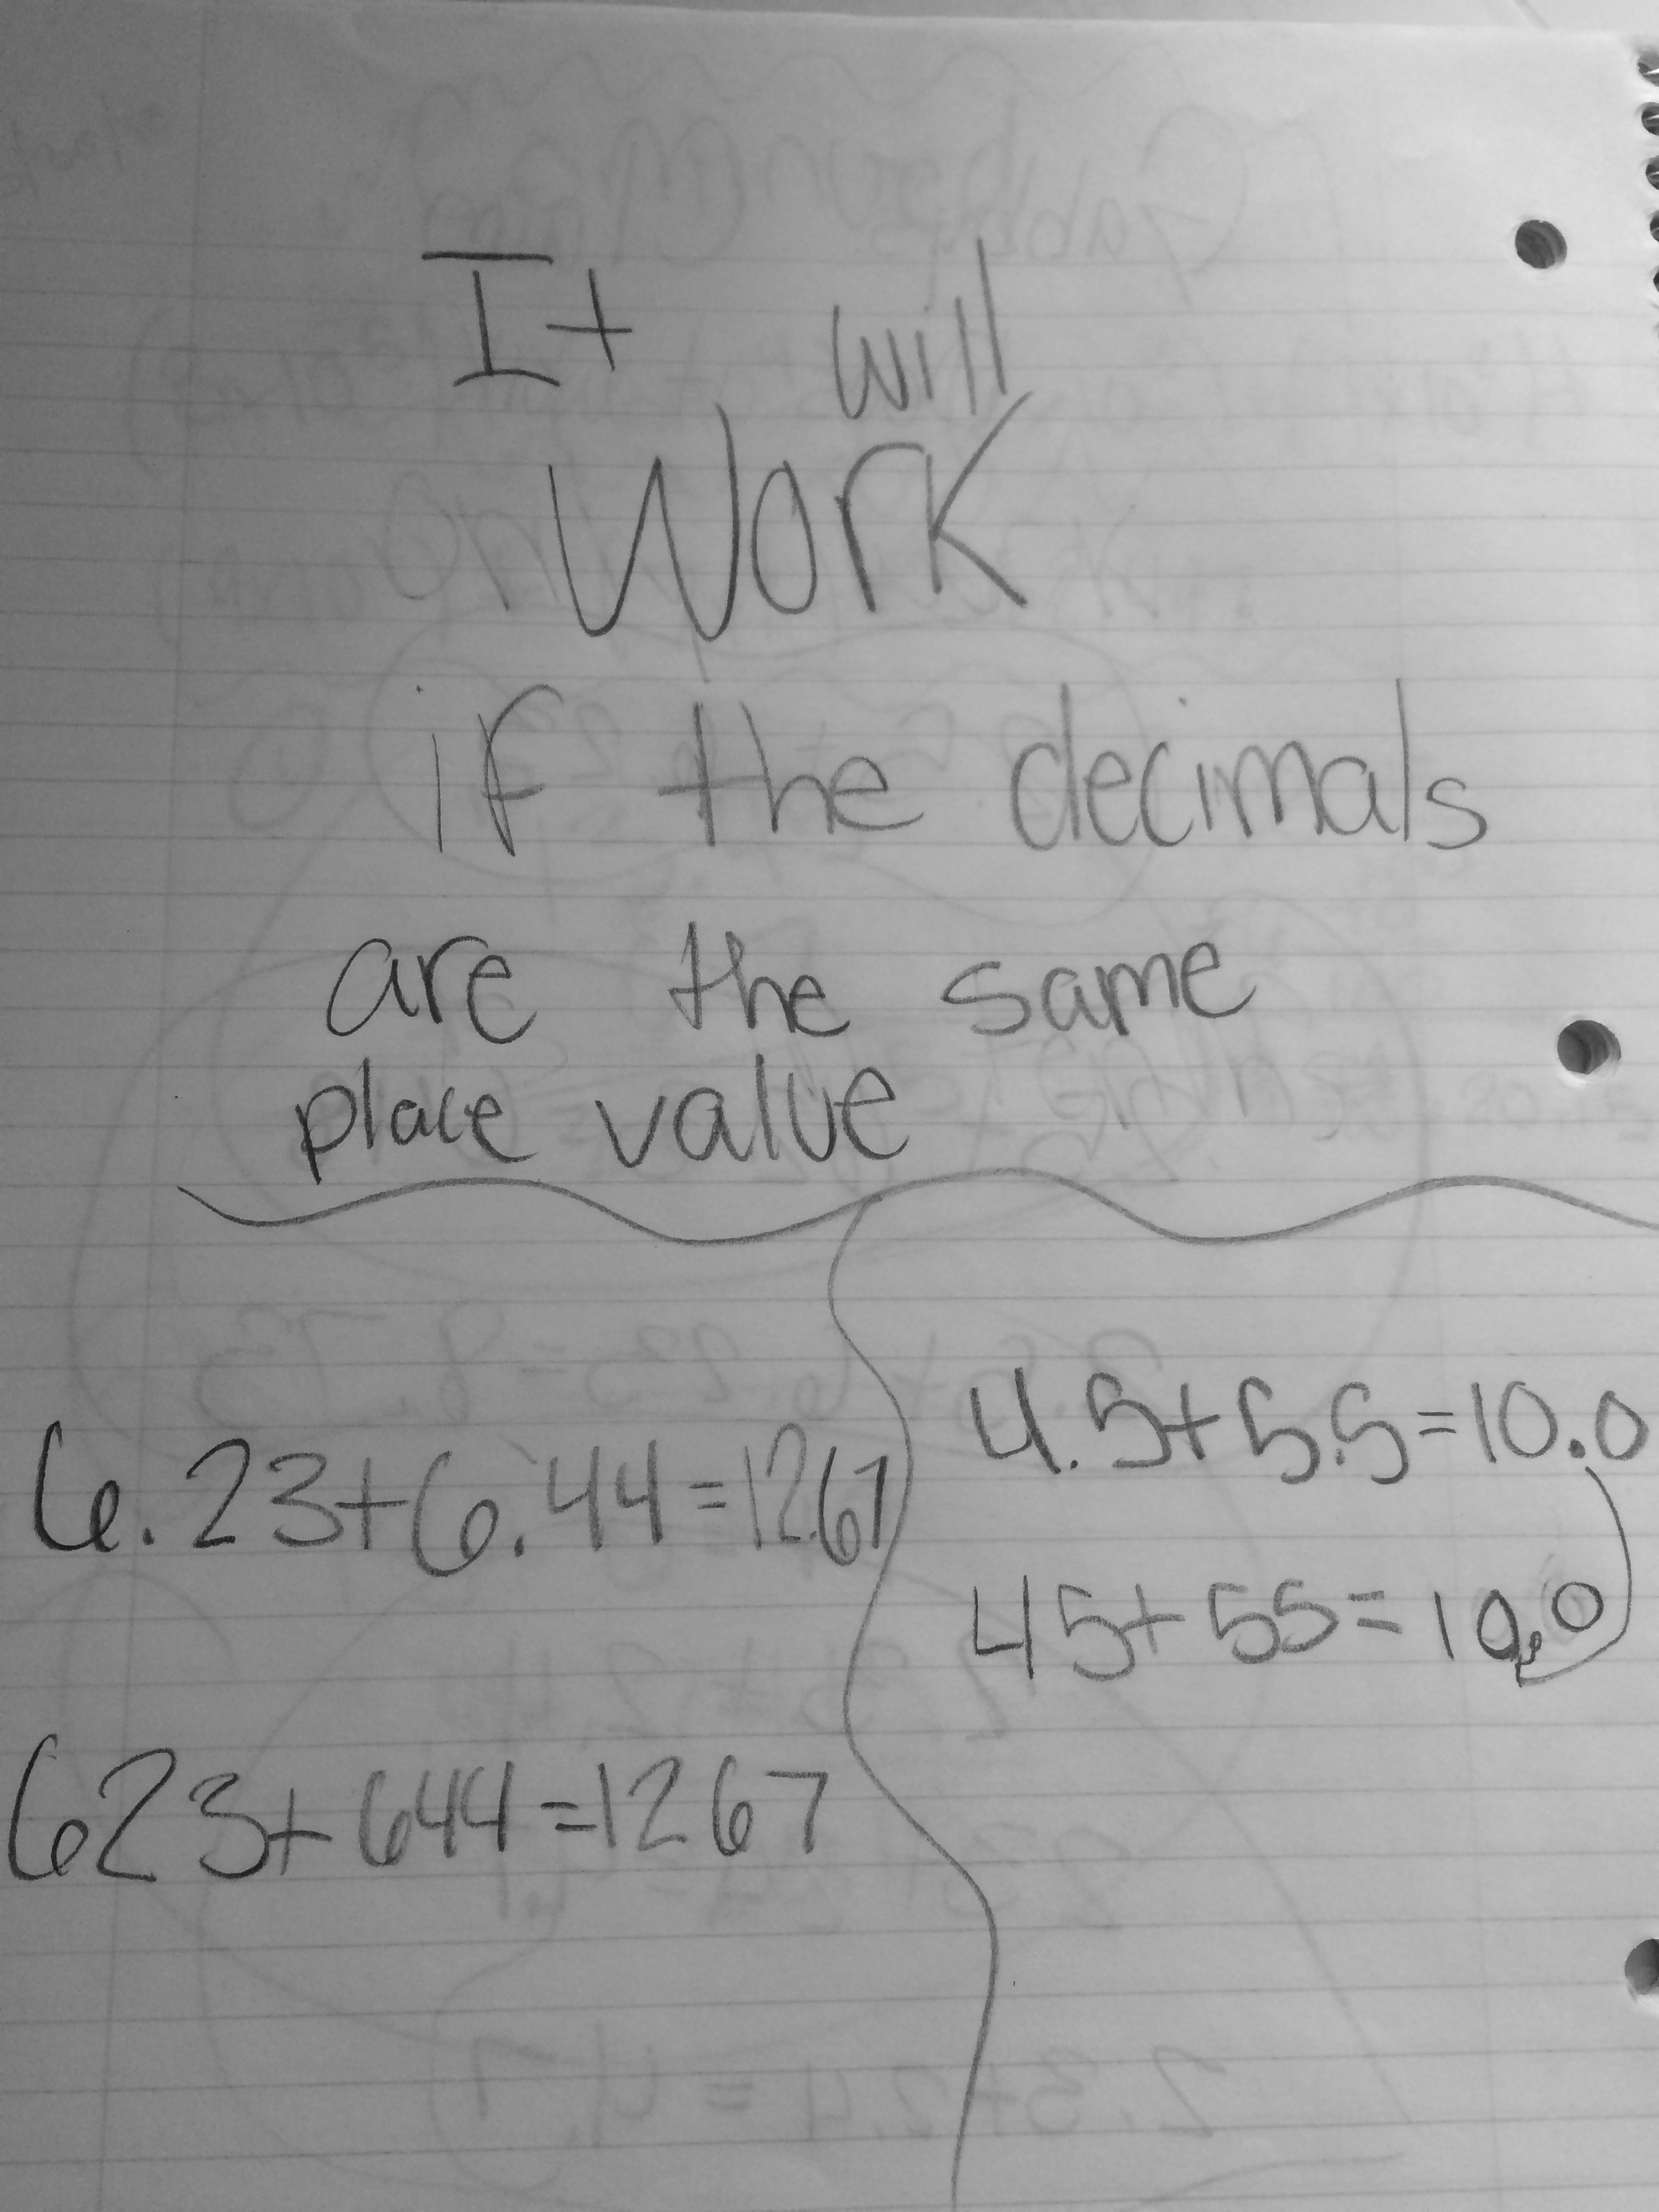 It will
Work
if the decimals
are the same
place value
6.23+6.44=12.67
623+644=1267
4.5+5.5=10.0
45+55=10.0